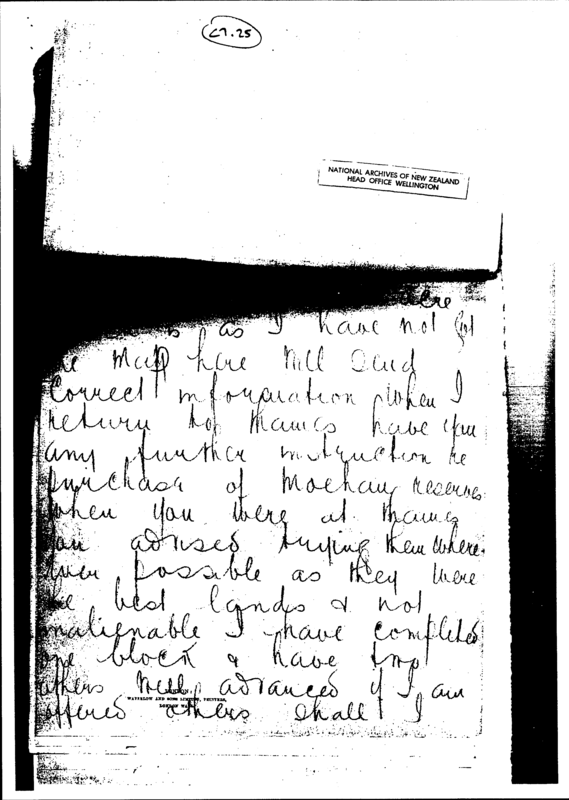 C7.25
NATIONAL ARCHIVES OF NEW ZEALAND
HEAD OFFICE WELLINGTON
as I have not got
the Map here Will Send
Correct information when I
return to Thames have you
any further instruction re
purchase of Moehau reserves
When you were at Thames
you advised buying them where
ever possible as they were
the best lands & not
inalienable I have completed
one block & have two
others Well advanced if I am
WATERLOW AND SONS LIMITED, PRINTERS,
LONDON WALL
offered others Shall I